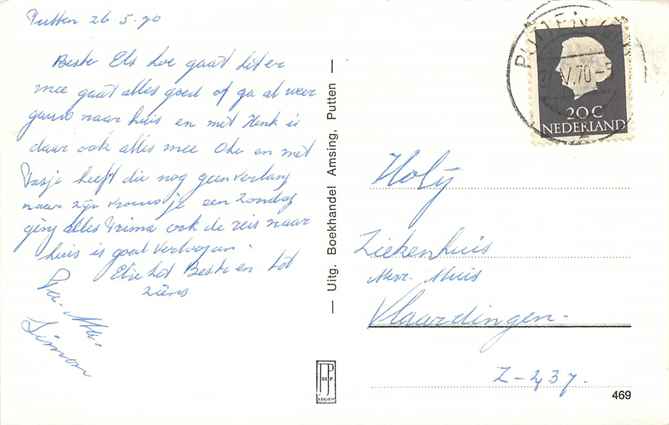 Putten 26.5.70
Beste Els hoe gaat het er
mee gaat alles goed of ga al weer
gauw naar huis en met Henk is
daar ook alles mee Oke en met
heeft die nog geen verlang
naar zijn vrouwtje een zondag
ging alles Prima ook de reis naar
huis is goed verlopen.
Else het Beste en tot
ziens
Pa. Ma.
Simon
— Uitg. Boekhandel Amsing, Putten —
PUTTEN
70
20 C
NEDERLAND
Holy
Ziekenhuis
Mevr. Muis
Vlaardingen.
Z-237.
469